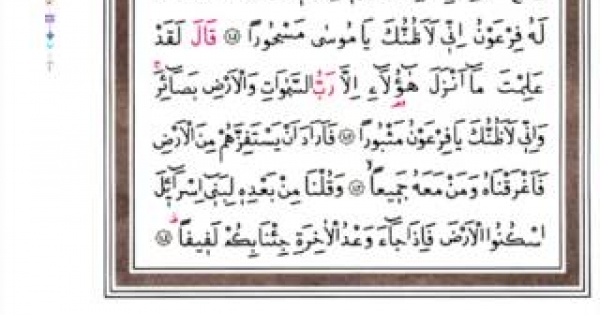 لَهُ فِرْعَوْنُ اِنّ۪ي لَاَظُنُّكَ يَا مُوسٰى مَسْحُورًا ۝ قَالَ لَقَدْ
عَلِمْتَ مَٓا اَنْزَلَ هٰٓؤُ۬لَٓاءِ اِلَّا رَبُّ السَّمٰوَاتِ وَالْاَرْضِ بَصَٓائِرَۚ
وَاِنّ۪ي لَاَظُنُّكَ يَا فِرْعَوْنُ مَثْبُورًا ۝ فَاَرَادَ اَنْ يَسْتَفِزَّهُمْ مِنَ الْاَرْضِ
فَاَغْرَقْنَاهُ وَمَنْ مَعَهُ جَم۪يعًاۙ ۝ وَقُلْنَا مِنْ بَعْدِه۪ لِبَن۪ٓي اِسْرَٓائ۪لَ
اسْكُنُوا الْاَرْضَ فَاِذَا جَٓاءَ وَعْدُ الْاٰخِرَةِ جِئْنَا بِكُمْ لَف۪يفًاۜ ۝